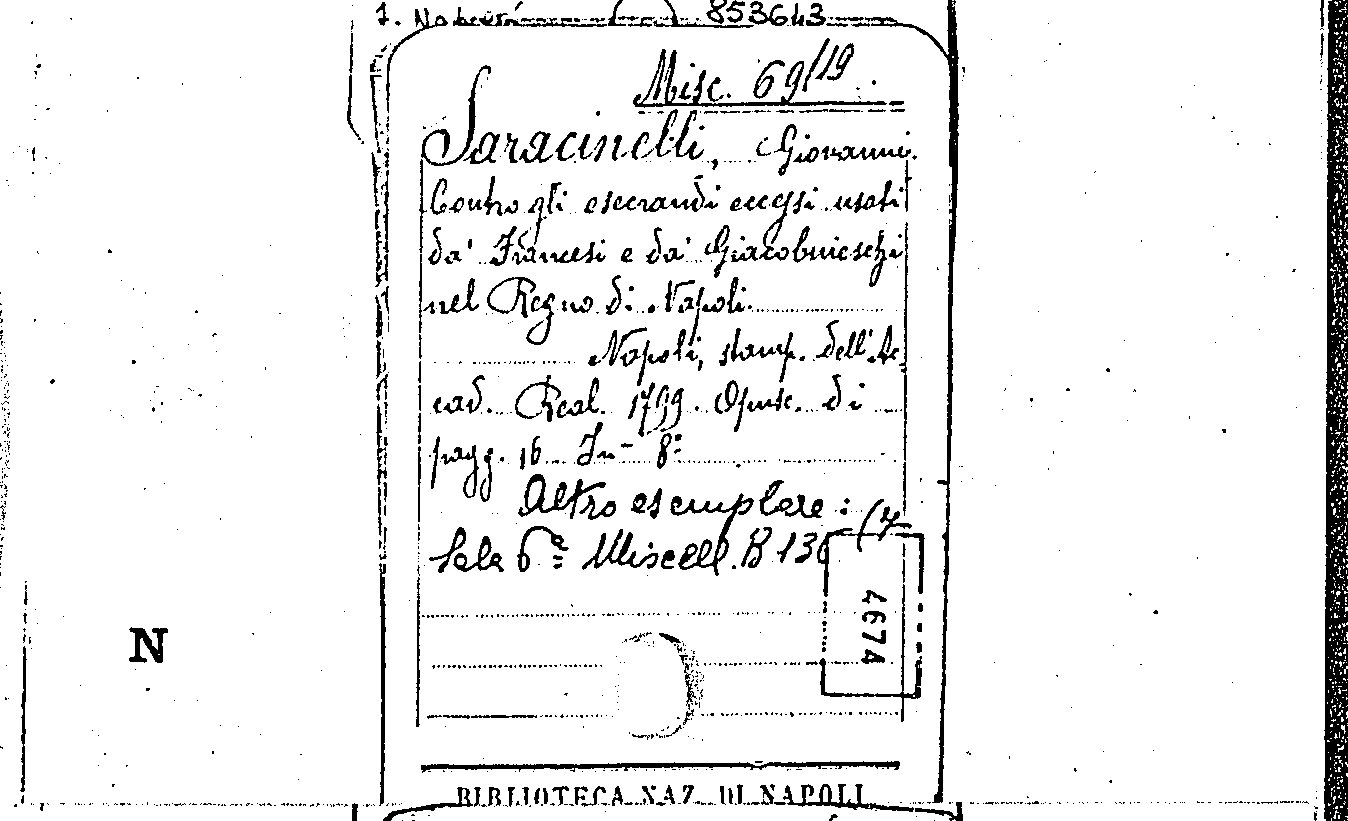 1. Naberrá 853643
Misc. 69/19
Saracinelli, Giovanni.
Contro gli esecrandi eccessi usati
da' Francesi e da' Giacobineschi
nel Regno di Napoli.
Napoli, stamp. dell'Ac-
cad. Real. 1799. Opusc. di
pagg. 16 In-8º
Altro esemplare:
Sala 6ª Miscell. B 136 (4
4674
N
BIBLIOTECA NAZ. DI NAPOLI